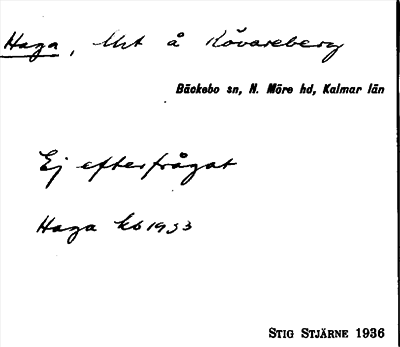 Haga, Uxt å Rövareberg
Bäckebo sn, N. Möre hd, Kalmar län
Ej efterfrågat
Haga kb 1933
STIG STJÄRNE 1936